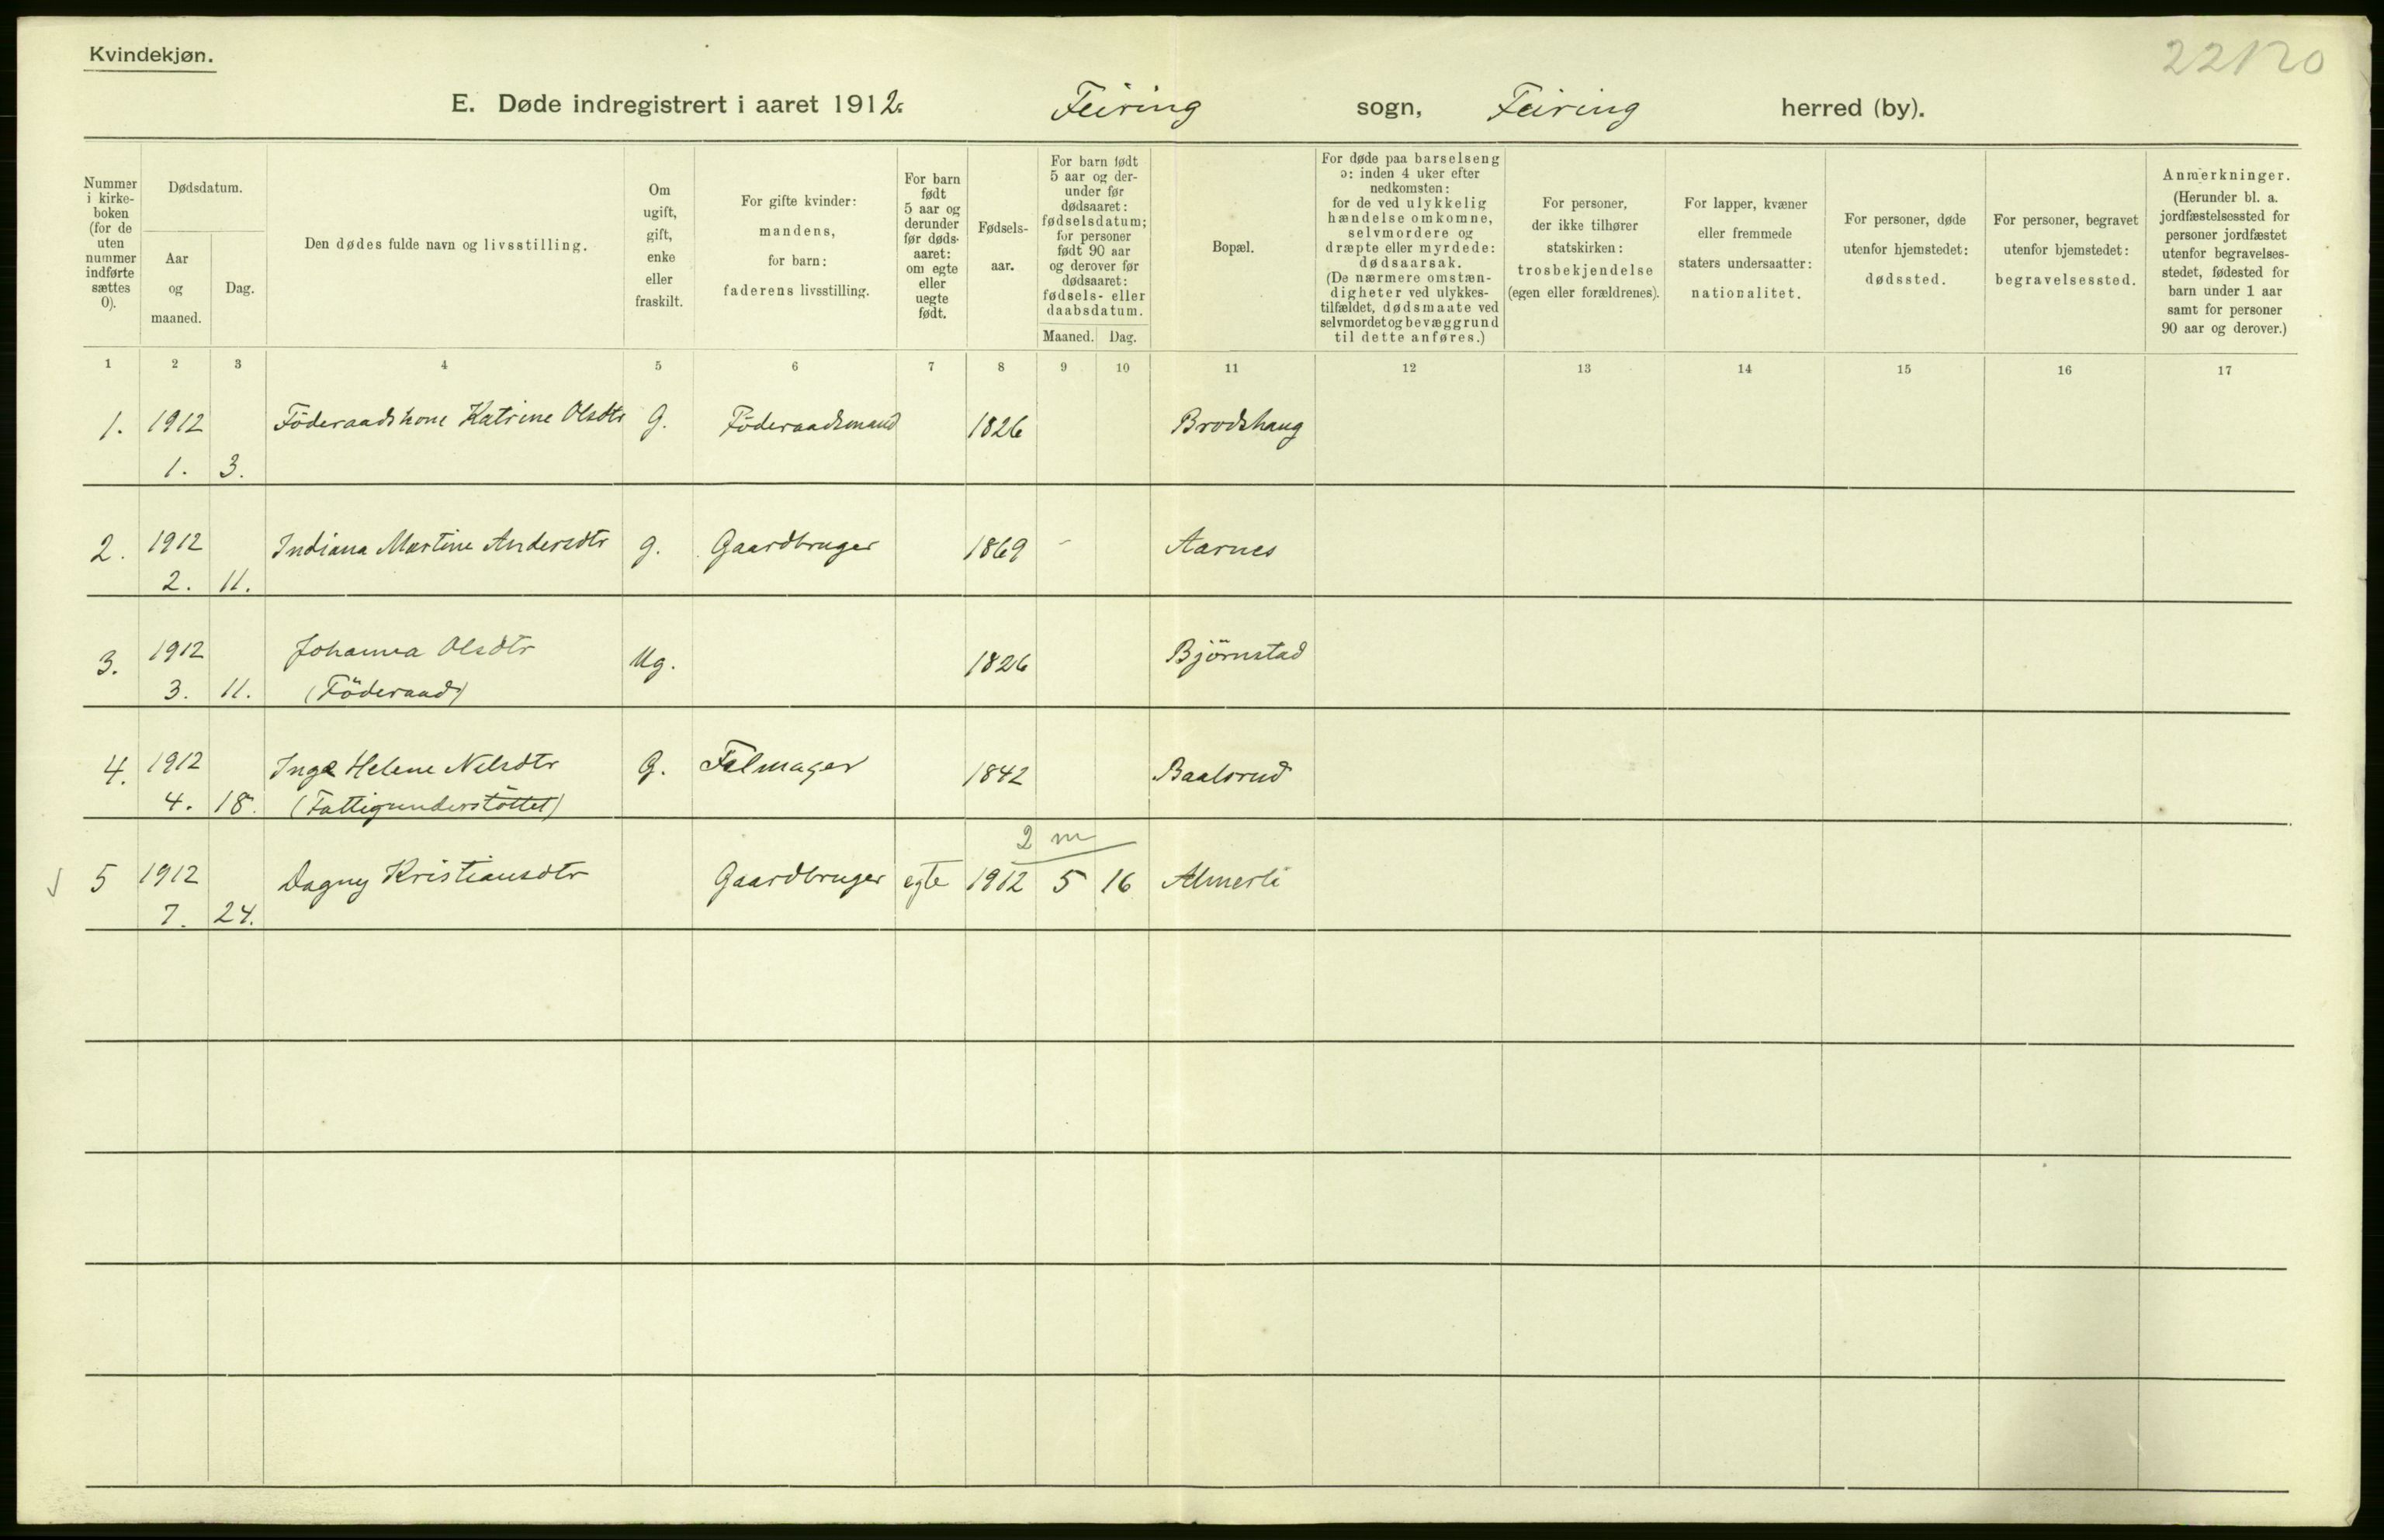 Kvindekjøn.
22120
E. Døde indregistrert i aaret 1912. Feiring sogn, Feiring herred (by).
Nummer i kirke-boken (for de uten nummer indførte sættes 0).
Dødsdatum.
Aar og maaned.
Dag.
Den dødes fulde navn og livsstilling.
Om ugift, gift, enke eller fraskilt.
For gifte kvinder: mandens, for barn: faderens livsstilling.
For barn født 5 aar og derunder før døds-aaret: om egte eller uegte født.
Fødsels-aar.
For barn født 5 aar og der-under før dødsaaret: fødselsdatum; for personer født 90 aar og derover før dødsaaret: fødsels- eller daabsdatum.
Maaned. Dag.
Bopæl.
For døde paa barselseng ɔ: inden 4 uker efter nedkomsten: for de ved ulykkelig hændelse omkomne, selvmordere og dræpte eller myrdede: dødsaarsak. (De nærmere omstæn-digheter ved ulykkes-tilfældet, dødsmaate ved selvmordet og bevæggrund til dette anføres.)
For personer, der ikke tilhører statskirken: trosbekjendelse (egen eller forældrenes).
For lapper, kvæner eller fremmede staters undersaatter: nationalitet.
For personer, døde utenfor hjemstedet: dødssted.
For personer, begravet utenfor bjemstedet: begravelsessted.
Anmerkninger. (Herunder bl. a. jordfæstelsessted for personer jordfæstet utenfor begravelses-stedet, fødested for barn under 1 aar samt for personer 90 aar og derover.)
1 2 3 4 5 6 7 8 9 10 11 12 13 14 15 16 17
1. 1912 Föderaadskone Katrine Olsdtr G. Föderaadsmand 1826 Brodshaug
1. 3.
2. 1912 Indiana Martine Andersdtr g. Gaardbruger 1869 - Aarnes
2. 11.
3. 1912 Johanna Olsdtr Ug. 1826 Björnstad
3. 11. (Föderaad)
4. 1912 Inge Helene Nilsdtr G. 1842 Baalsrud
4. 18. (Fattigunderstöttet)
2 m
5 1912 Dagny Kristiansdtr Gaardbruger egte 1912 5 16 Almerli
7. 24.